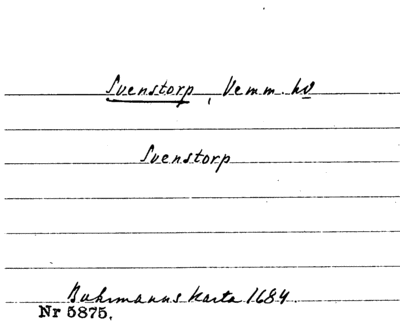 Svenstorp, Vemm. hd
Svenstorp
Buhrmanns Karta 1684.
Nr 5875.